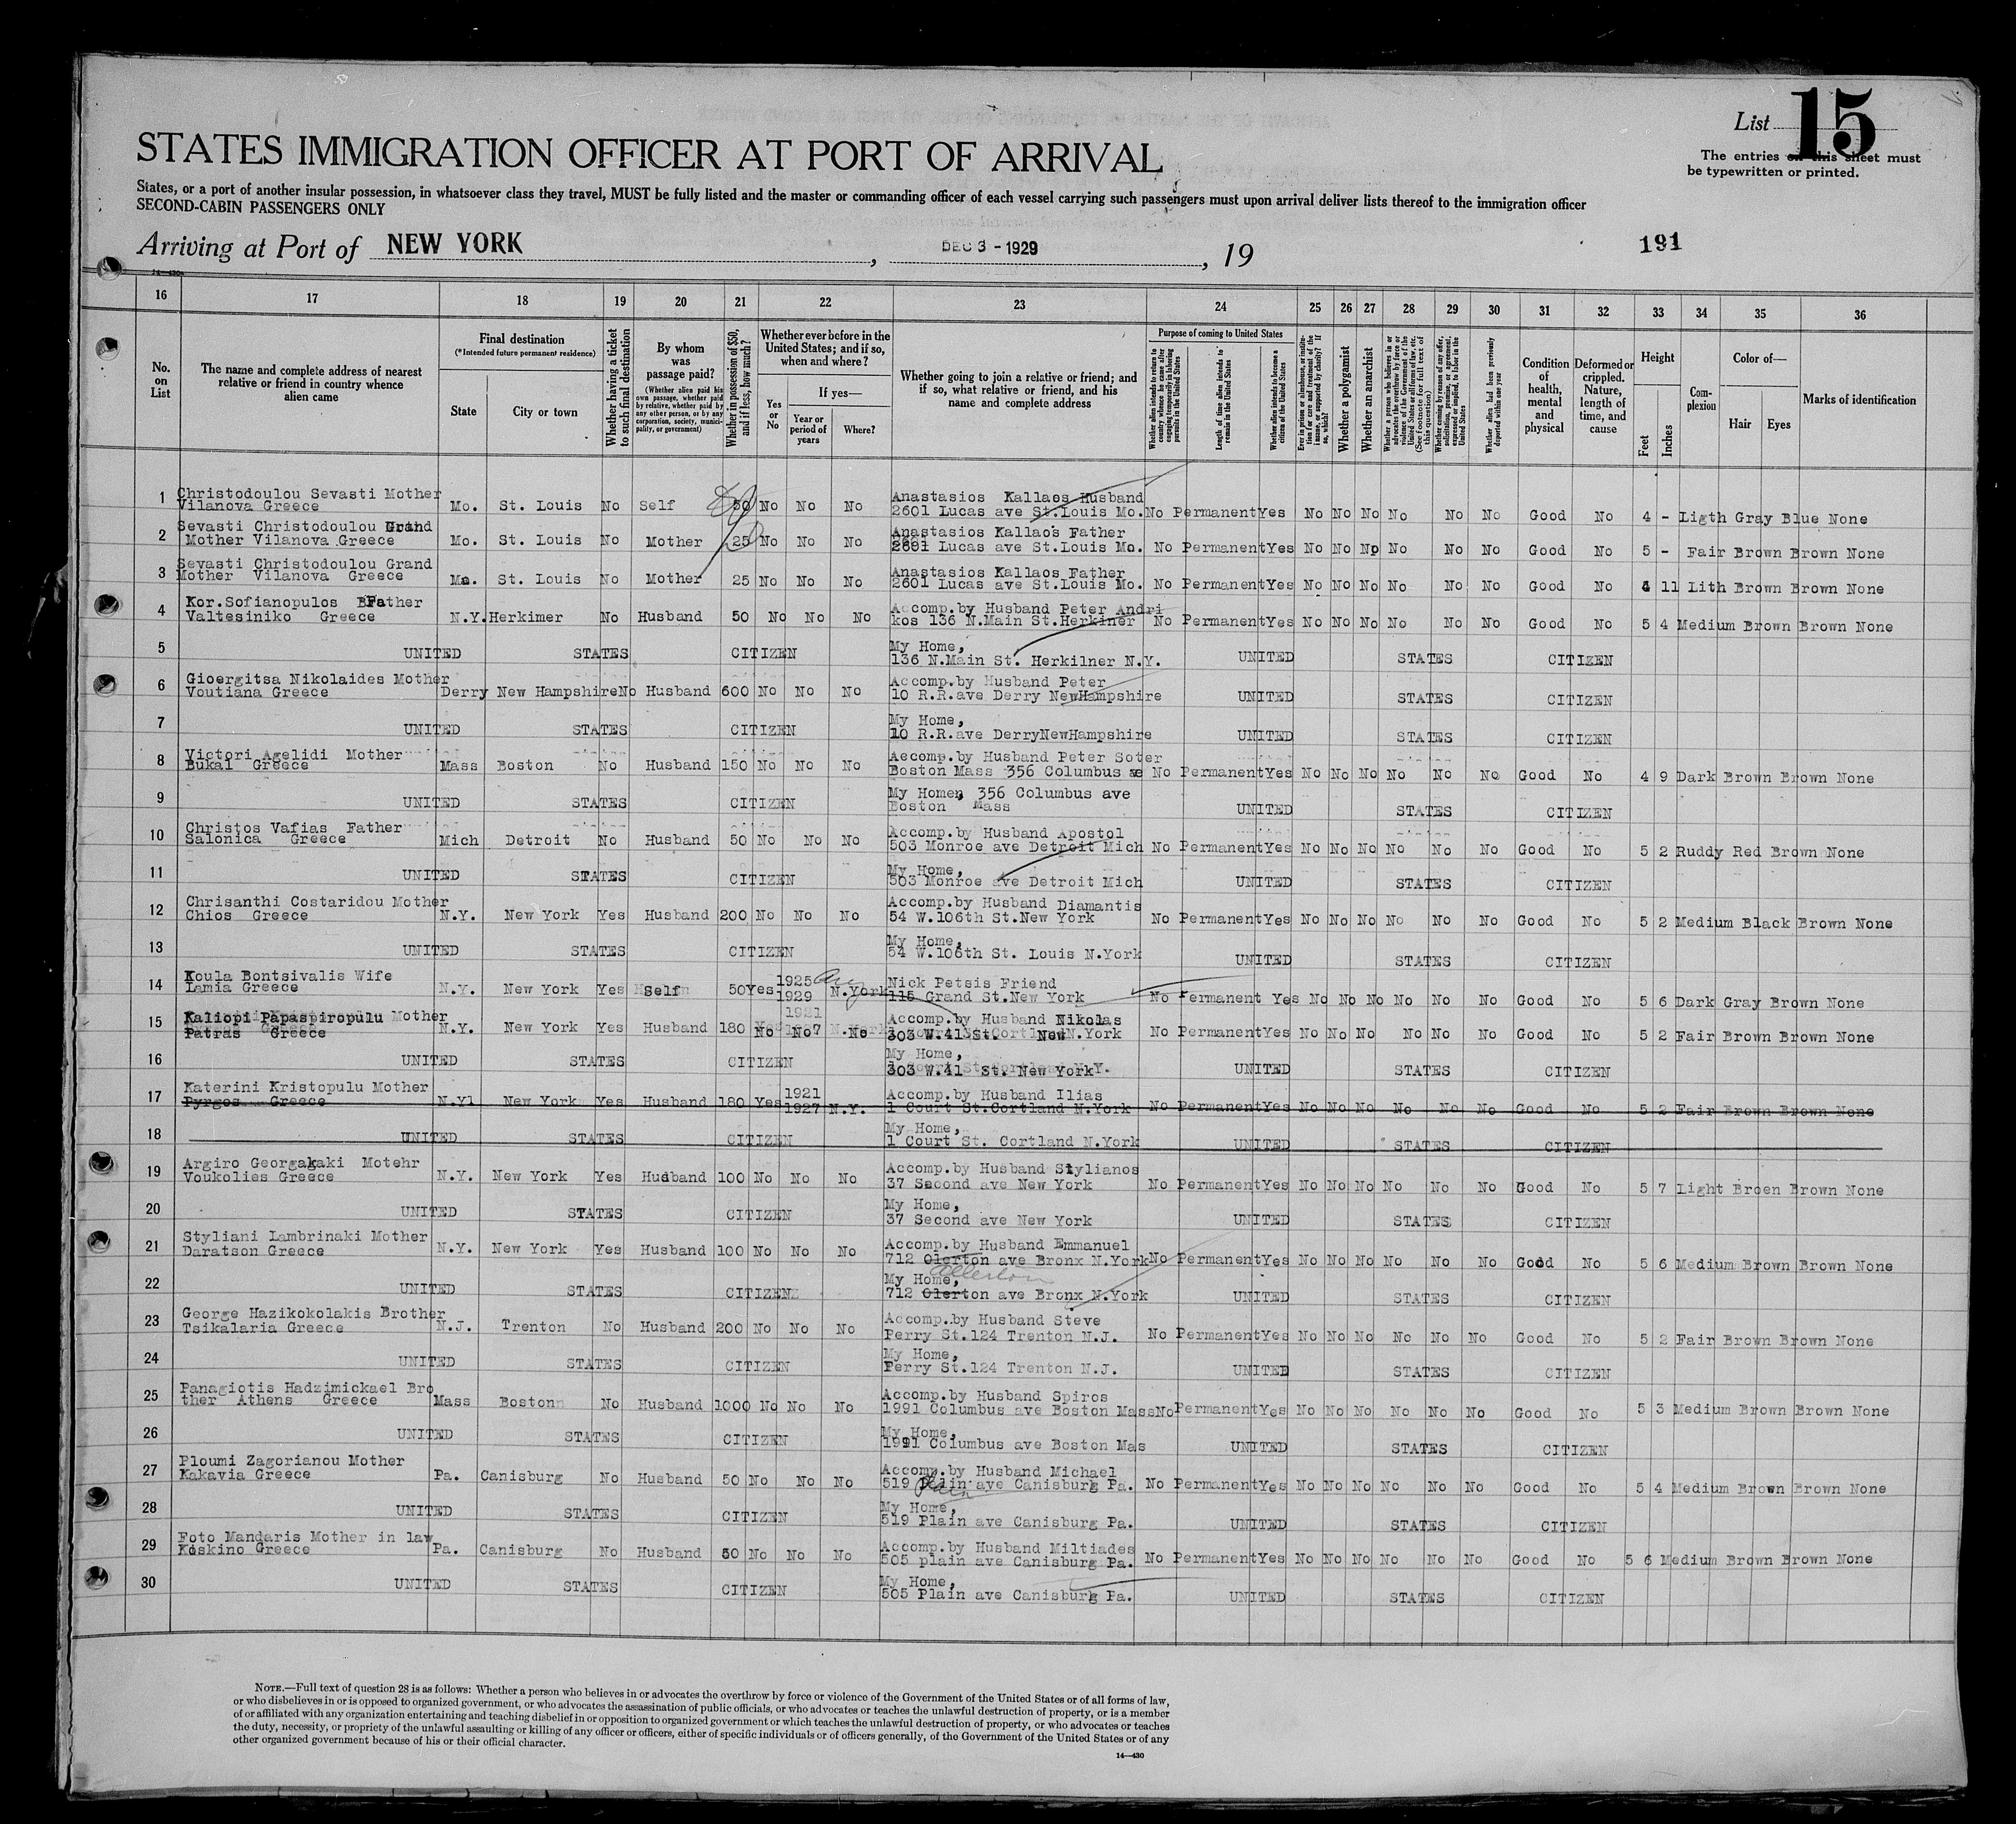 List 15
The entries on this sheet must
be typewritten or printed.
STATES IMMIGRATION OFFICER AT PORT OF ARRIVAL
States, or a port of another insular possession, in whatsoever class they travel, MUST be fully listed and the master or commanding officer of each vessel carrying such passengers must upon arrival deliver lists thereof to the immigration officer
SECOND-CABIN PASSENGERS ONLY
Arriving at Port of NEW YORK, DEC 3 - 1929, 19
191
14-430
16 17 18 19 20 21 22 23 24 25 26 27 28 29 30 31 32 33 34 35 36
No. on List
The name and complete address of nearest relative or friend in country whence alien came
Final destination
(*Intended future permanent residence)
State
City or town
Whether having a ticket to such final destination
By whom was passage paid?
(Whether alien paid his own passage, whether paid by relative, whether paid by any other person, or by any corporation, society, municipality, or government)
Whether in possession of $50, and if less, how much?
Whether ever before in the United States; and if so, when and where?
Yes or No
If yes—
Year or period of years
Where?
Whether going to join a relative or friend; and if so, what relative or friend, and his name and complete address
Purpose of coming to United States
Whether alien intends to return to country whence he came after engaging temporarily in laboring pursuits in the United States
Length of time alien intends to remain in the United States
Whether alien intends to become a citizen of the United States
Ever in prison or almshouse, or institution for care and treatment of the insane, or supported by charity? If so, which?
Whether a polygamist
Whether an anarchist
Whether a person who believes in or advocates the overthrow by force or violence of the Government of the United States or all forms of law, etc. (See footnote for full text of this question)
Whether coming by reason of any offer, solicitation, promise, or agreement, expressed or implied, to labor in the United States
Whether alien had been previously deported within one year
Condition of health, mental and physical
Deformed or crippled. Nature, length of time, and cause
Height
Feet
Inches
Complexion
Color of—
Hair
Eyes
Marks of identification
1 Christodoulou Sevasti Mother Vilanova Greece Mo. St. Louis No Self 50 No No No Anastasios Kallaos Husband 2601 Lucas ave St.Louis Mo. No Permanent Yes No No No No No No Good No 4 - Ligth Gray Blue None
2 Sevasti Christodoulou Grand Mother Vilanova Greece Mo. St. Louis No Mother 25 No No No Anastasios Kallaos Father 2601 Lucas ave St.Louis Mo. No Permanent Yes No No No No No No Good No 5 - Fair Brown Brown None
3 Sevasti Christodoulou Grand Mother Vilanova Greece Mo. St. Louis No Mother 25 No No No Anastasios Kallaos Father 2601 Lucas ave St.Louis Mo. No Permanent Yes No No No No No No Good No 4 11 Lith Brown Brown None
4 Kor.Sofianopulos Father Valtesiniko Greece N.Y. Herkimer No Husband 50 No No No Accomp.by Husband Peter Andrikos 136 N.Main St.Herkiner No Permanent Yes No No No No No No Good No 5 4 Medium Brown Brown None
5 UNITED STATES CITIZEN My Home, 136 N.Main St. Herkilner N.Y. UNITED STATES CITIZEN
6 Gioergitsa Nikolaides Mother Voutiana Greece Derry New Hampshire No Husband 600 No No No Accomp.by Husband Peter 10 R.R.ave Derry NewHampshire UNITED STATES CITIZEN
7 UNITED STATES CITIZEN My Home, 10 R.R.ave DerryNewHampshire UNITED STATES CITIZEN
8 Victori Agelidi Mother Bukal Greece Mass Boston No Husband 150 No No No Aecomp.by Husband Peter Soter Boston Mass 356 Columbus ae No Permanent Yes No No No No No No Good No 4 9 Dark Brown Brown None
9 UNITED STATES CITIZEN My Home, 356 Columbus ave Boston Mass UNITED STATES CITIZEN
10 Christos Vafias Father Salonica Greece Mich Detroit No Husband 50 No No No Accomp.by Husband Apostol 503 Monroe ave Detroit Mich No Permanent Yes No No No No No No Good No 5 2 Ruddy Red Brown None
11 UNITED STATES CITIZEN My Home, 503 Monroe ave Detroit Mich UNITED STATES CITIZEN
12 Chrisanthi Costaridou Mother Chios Greece N.Y. New York Yes Husband 200 No No No Accomp.by Husband Diamantis 54 W.106th St.New York No Permanent Yes No No No No No No Good No 5 2 Medium Black Brown None
13 UNITED STATES CITIZEN My Home, 54 W.106th St. Louis N.York UNITED STATES CITIZEN
14 Koula Bontsivalis Wife Lamia Greece N.Y. New York Yes Self 50 Yes 1925 1929 N.York Nick Petsis Friend 115 Grand St.New York No Permanent Yes No No No No No No Good No 5 6 Dark Gray Brown None
15 Kaliopi Papaspiropulu Mother Patras Greece N.Y. New York Yes Husband 180 No No No Accomp.by Husband Nikolas 303 W.41 St. New N.York No Permanent Yes No No No No No No Good No 5 2 Fair Brown Brown None
16 UNITED STATES CITIZEN My Home, 303 W.41 St. New York UNITED STATES CITIZEN
17 Katerini Kristopulu Mother Pyrgos Greece N.Yl New York Yes Husband 180 Yes 1921 1927 N.Y. Accomp.by Husband Ilias 1 Court St.Cortland N.York No Permanent Yes No No No No No No Good No 5 2 Fair Brown Brown None
18 UNITED STATES CITIZEN My Home, 1 Court St. Cortland N.York UNITED STATES CITIZEN
19 Argiro Georgakaki Motehr Voukolies Greece N.Y. New York Yes Husband 100 No No No Accomp.by Husband Stylianos 37 Second ave New York No Permanent Yes No No No No No No Good No 5 7 Light Broen Brown None
20 UNITED STATES CITIZEN My Home, 37 Second ave New York UNITED STATES CITIZEN
21 Styliani Lambrinaki Mother Daratson Greece N.Y. New York Yes Husband 100 No No No Accomp.by Husband Emmanuel 712 Olerton ave Bronx N.York No Permanent Yes No No No No No No Good No 5 6 Medium Brown Brown None
Allerton
22 UNITED STATES CITIZEN My Home, 712 Olerton ave Bronx N.York UNITED STATES CITIZEN
23 George Hazikokolakis Brother Tsikalaria Greece N.J. Trenton No Husband 200 No No No Accomp.by Husband Steve Perry St.124 Trenton N.J. No Permanent Yes No No No No No No Good No 5 2 Fair Brown Brown None
24 UNITED STATES CITIZEN My Home, Perry St.124 Trenton N.J. UNITED STATES CITIZEN
25 Panagiotis Hadzimickael Brother Athens Greece Mass Boston No Husband 1000 No No No Accomp.by Husband Spiros 1991 Columbus ave Boston Mass No Permanent Yes No No No No No No Good No 5 3 Medium Brown Brown None
26 UNITED STATES CITIZEN My Home, 1991 Columbus ave Boston Mas UNITED STATES CITIZEN
27 Ploumi Zagorianou Mother Kakavia Greece Pa. Canisburg No Husband 50 No No No Accomp.by Husband Michael 519 Plain ave Canisburg Pa. No Permanent Yes No No No No No No Good No 5 4 Medium Brown Brown None
Plain
28 UNITED STATES CITIZEN My Home, 519 Plain ave Canisburg Pa. UNITED STATES CITIZEN
29 Foto Mandaris Mother in law Koskino Greece Pa. Canisburg No Husband 50 No No No Accomp.by Husband Miltiades 505 plain ave Canisburg Pa. No Permanent Yes No No No No No No Good No 5 6 Medium Brown Brown None
30 UNITED STATES CITIZEN My Home, 505 Plain ave Canisburg Pa. UNITED STATES CITIZEN
NOTE.—Full text of question 28 is as follows: Whether a person who believes in or advocates the overthrow by force or violence of the Government of the United States or of all forms of law,
or who disbelieves in or is opposed to organized government, or who advocates the assassination of public officials, or who advocates or teaches the unlawful destruction of property, or is a member
of or affiliated with any organization entertaining and teaching disbelief in or opposition to organized government or which teaches the unlawful destruction of property, or who advocates or teaches
the duty, necessity, or propriety of the unlawful assaulting or killing of any officer or officers, either of specific individuals or of officers generally, of the Government of the United States or of any
other organized government because of his or their official character.
14—430